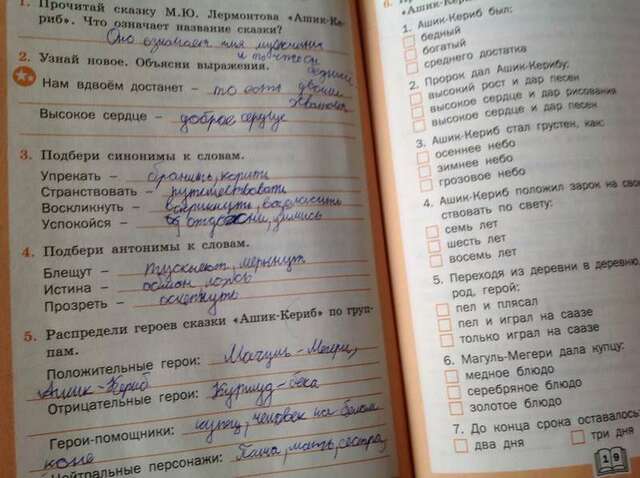 1. Прочитай сказку М.Ю. Лермонтова «Ашик-Ке-
риб». Что означает название сказки?
Оно означает имя мужчины
и то что он
бедный
2. Узнай новое. Объясни выражения.
Нам вдвоём достанет – то есть двоим
хватит
Высокое сердце – доброе сердце
3. Подбери синонимы к словам.
Упрекать – бранить, корить
Странствовать – путешествовать
Воскликнуть – вскрикнуть, возгласить
Успокойся –
4. Подбери антонимы к словам.
Блещут – тускнеют, меркнут
Истина – обман, ложь
Прозреть – ослепнуть
5. Распредели героев сказки «Ашик-Кериб» по груп-
пам.
Положительные герои: Магуль-Мегери,
Ашик-Кериб
Отрицательные герои: Куршуд-бека
Герои-помощники: купец, человек на белом
коне
Нейтральные персонажи: мать, сестра,
«Ашик-Кериб
1. Ашик-Кериб был:
бедный
богатый
среднего достатка
2. Пророк дал Ашик-Керибу:
высокий рост и дар песен
высокое сердце и дар рисования
высокое сердце и дар песен
3. Ашик-Кериб стал грустен, как:
осеннее небо
зимнее небо
грозовое небо
4. Ашик-Кериб положил зарок на сво
ствовать по свету:
семь лет
шесть лет
восемь лет
5. Переходя из деревни в деревню,
род, герой:
пел и плясал
пел и играл на саазе
только играл на саазе
6. Магуль-Мегери дала купцу:
медное блюдо
серебряное блюдо
золотое блюдо
7. До конца срока оставалось:
два дня
три дня
19